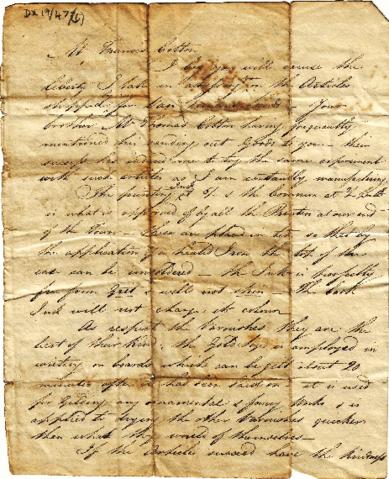 DX 19/47 (6)
Mr Francis Cotton
I beg you will excuse the
liberty I take in on the Articles
shipped for Van Diemens Land Your
brother Mr Thomas Cotton having frequently
mentioned his sending out Goods to you - their
success has induced me to try the same experiment
with such articles as I am constantly manufacturing
The printing Ink at 5/- & the Common at 2/-
is what is approved of by all the Printers at our end
of the Town - are in so that by
the application of a heated Iron the top of the
case can be - the Ink is perfectly
free from & will not - The best
Ink will not change its colour
As respect the Varnishes they are the
best of their kind, the Gold size is employed in
writing on boards which can be gilt about 20
minutes after it has been on - it is used
for Gilding any ornamental & fancy works & is
applied to drying the other Varnishes quicker
than what they would of themselves -
If the Articles succeed have the kindness